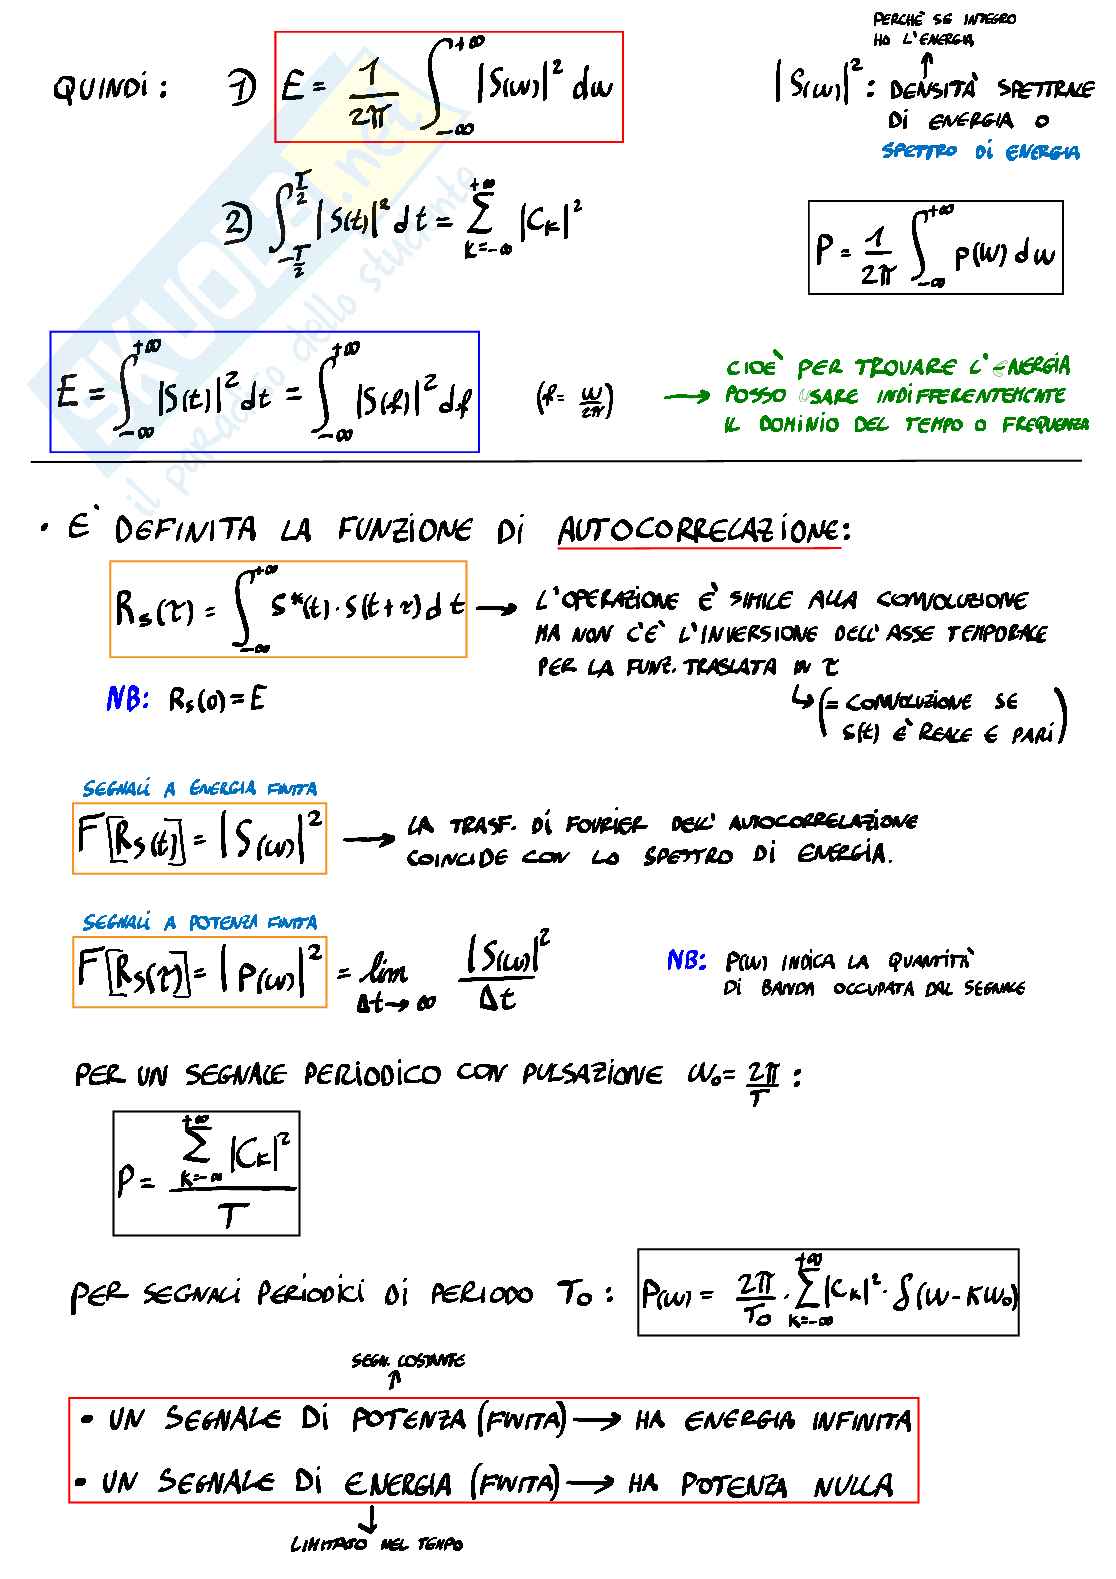 PERCHÈ SE INTEGRO
HO L'ENERGIA
QUINDI: 1) E = 1/2π ∫_{-∞}^{+∞} |S(ω)|² dω
|S(ω)|²: DENSITÀ SPETTRALE
DI ENERGIA O
SPETTRO DI ENERGIA
2) ∫_{-T/2}^{T/2} |S(t)|² dt = Σ_{K=-∞}^{+∞} |C_K|²
P = 1/2π ∫_{-∞}^{+∞} P(W) dω
E = ∫_{-∞}^{+∞} |S(t)|² dt = ∫_{-∞}^{+∞} |S(f)|² df (f = ω/2π) →
CIOÈ PER TROVARE L'ENERGIA
POSSO USARE INDIFFERENTEMENTE
IL DOMINIO DEL TEMPO O FREQUENZA
SKUOLA.net
il paradiso dello studente
• E' DEFINITA LA FUNZIONE DI AUTOCORRELAZIONE:
R_s(τ) = ∫_{-∞}^{+∞} S*(t)·S(t+τ) dt →
L'OPERAZIONE È SIMILE ALLA CONVOLUZIONE
MA NON C'È L'INVERSIONE DELL'ASSE TEMPORALE
PER LA FUNZ. TRASLATA IN τ
NB: R_s(0) = E
↳ (= CONVOLUZIONE SE
S(t) È REALE E PARI)
SEGNALI A ENERGIA FINITA
F[R_s(t)] = |S(ω)|² →
LA TRASF. DI FOURIER DELL'AUTOCORRELAZIONE
COINCIDE CON LO SPETTRO DI ENERGIA.
SEGNALI A POTENZA FINITA
F[R_s(τ)] = |P(ω)|² = lim_{Δt→∞} |S(ω)|²/Δt
NB: P(W) INDICA LA QUANTITÀ
DI BANDA OCCUPATA DAL SEGNALE
PER UN SEGNALE PERIODICO CON PULSAZIONE ω₀ = 2π/T :
P = Σ_{K=-∞}^{+∞} |C_K|² / T
PER SEGNALI PERIODICI DI PERIODO T₀ : P(W) = 2π/T₀ · Σ_{K=-∞}^{+∞} |C_K|² · δ(ω - Kω₀)
SEGN. COSTANTE
↑
• UN SEGNALE DI POTENZA (FINITA) → HA ENERGIA INFINITA
• UN SEGNALE DI ENERGIA (FINITA) → HA POTENZA NULLA
↓
LIMITATO NEL TEMPO